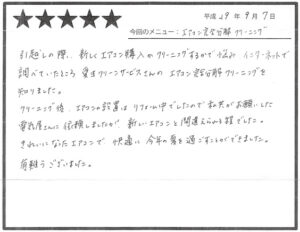 ★★★★★
平成 29年 9月 7日
今回のメニュー：エアコン完全分解クリーニング
引越しの際、新しくエアコン購入かクリーニングするかで悩み インターネットで
調べていたところ クリーニングサービスさんの エアコン完全分解クリーニングを
知りました。
クリーニング後、エアコンの設置は リフォーム中でしたので 私共がお願いした
電気屋さんに依頼しましたが 新しいエアコンと間違えられる程でした。
きれいになったエアコンで 快適に 今年の夏を過ごすことができました。
有難うございました。